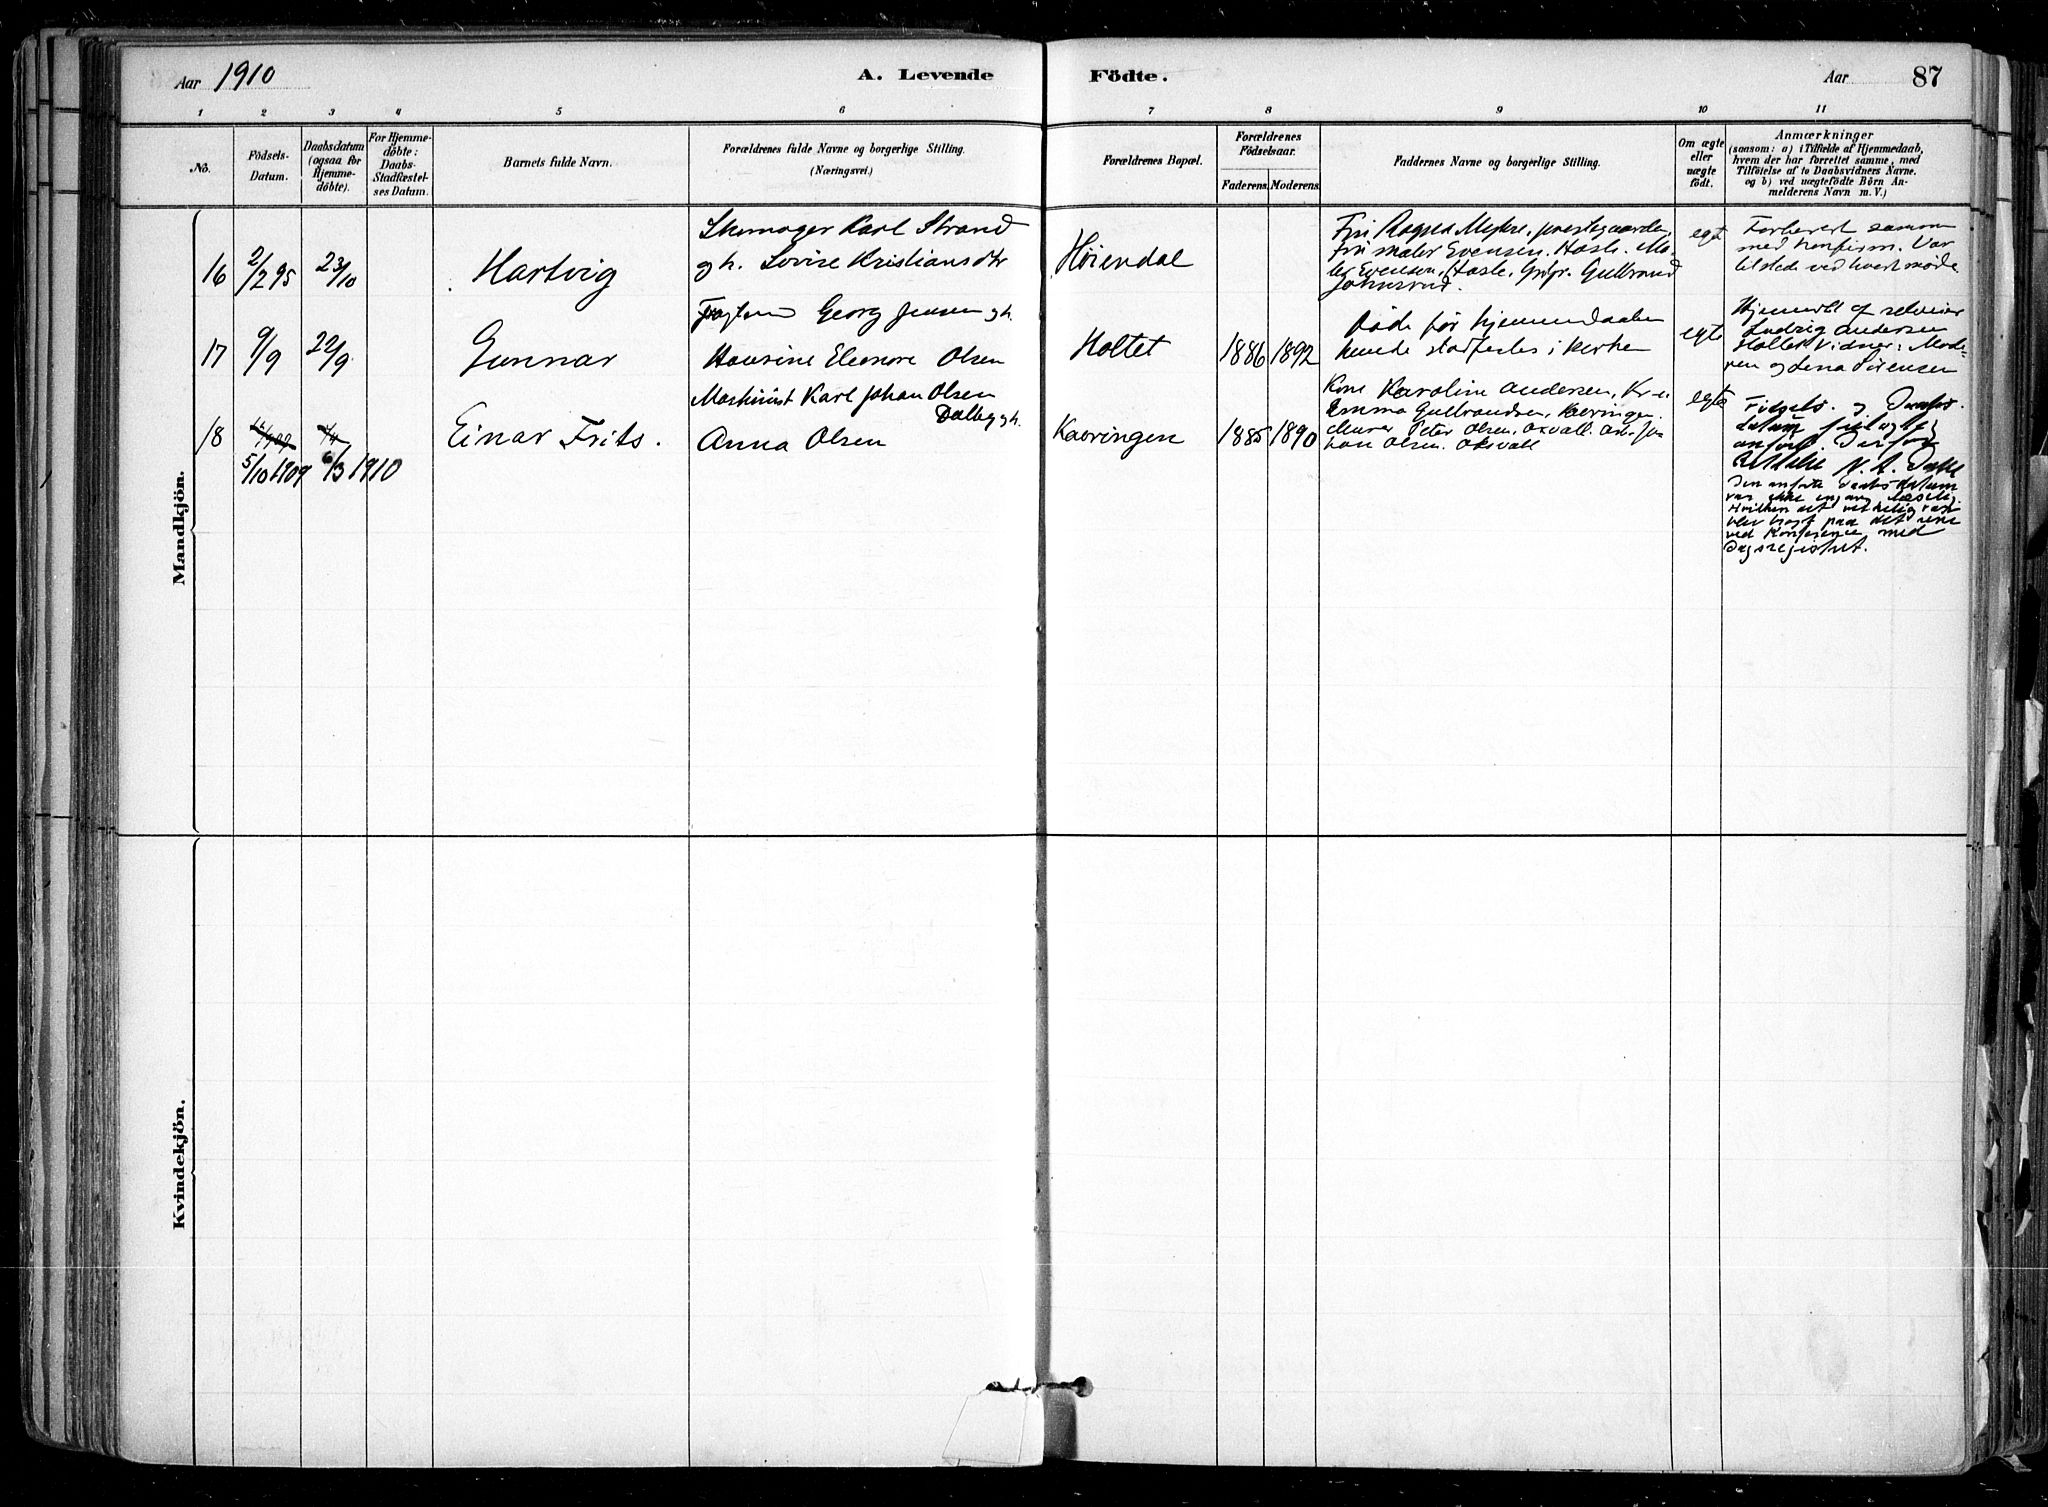 Aar 1910
A. Levende Födte.
Aar 87
1 2 3 4 5 6 7 8 9 10 11
No.
Födsels-
Datum.
Daabsdatum
(ogsaa for
Hjemme-
döbte).
For Hjemme-
döbte:
Daabs-
Stadfæstel-
ses Datum.
Barnets fulde Navn.
Forældrenes fulde Navne og borgerlige Stilling.
(Næringsvei.)
Forældrenes Bopæl.
Forældrenes
Födselsaar.
Faderens. Moderens.
Faddernes Navne og borgerlige Stilling.
Om ægte
eller
uægte
födt.
Anmærkninger
(saasom: a) i Tilfælde af Hjemmedaab,
hvem der har forrettet samme, med
Tilföielse af to Daabsvidners Navne,
og b) ved uægtefödte Börn An-
melderens Navn m. V.)
Mandkjön.
16
2/2 95
23/10
Hartvig
Skomager Karl Strand
og h. Lovise Kristiansdtr
Høiendal
Fru Ragna Myhre, prestegaarden,
Fru maler Evensen, Hasle. Ma-
ler Evensen, Hasle, Grbr. Gulbrand
Johnsrud.
egt
Forberedt sammen
med konfirm. Var
tilstede ved hvert møde
17
9/9
22/9
Gunnar
Georg Jensen og h.
Hansine Eleonore Olsen
Holtet
1886
1892
Døde før hjemmedaaben
kunde stadfestes i kirken
egte
Hjemdbt af selveier
Ludvig Andersen
Holtet. Vidner: Mode-
ren og Lena Sørensen
18
5/10 1909
6/3 1910
Einar Frits.
Maskinist Karl Johan Olsen
Dalby og h.
Anna Olsen
Kavringen
1885
1890
Kone Karoline Andersen, Kr.a
Emma Gulbrandsen, Kavringen.
Murer Peter Olsen, Oksvall. Arb. Jo-
han Olsen. Oksvall
egte
Fødsels- og Daabs-
datum feilagtig
anført. Derfor
rettelse N. A. Dahl
Den anførte Daabsdatum
var ikke engang Mæslig,
hvilken det virkelig var
blev bragt paa det rene
ved Konference med
Dagsregistret.
Kvindekjön.